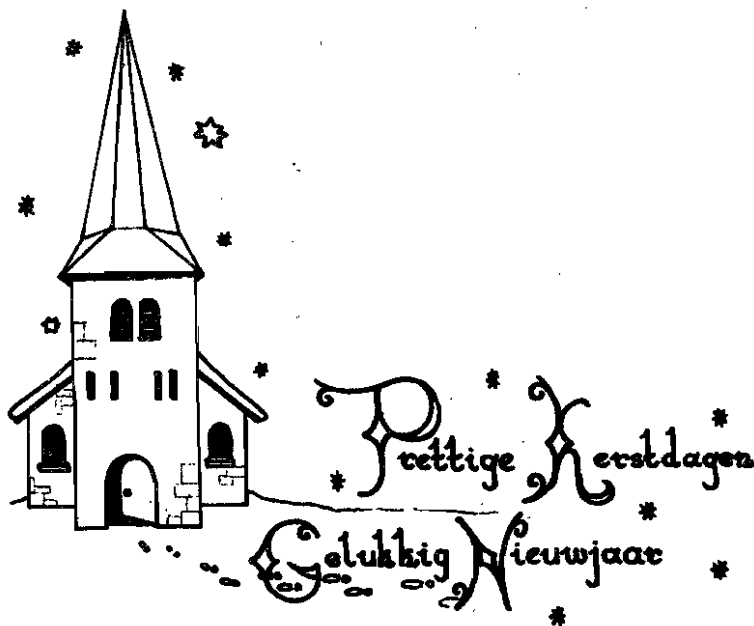 Prettige Kerstdagen
Gelukkig Nieuwjaar